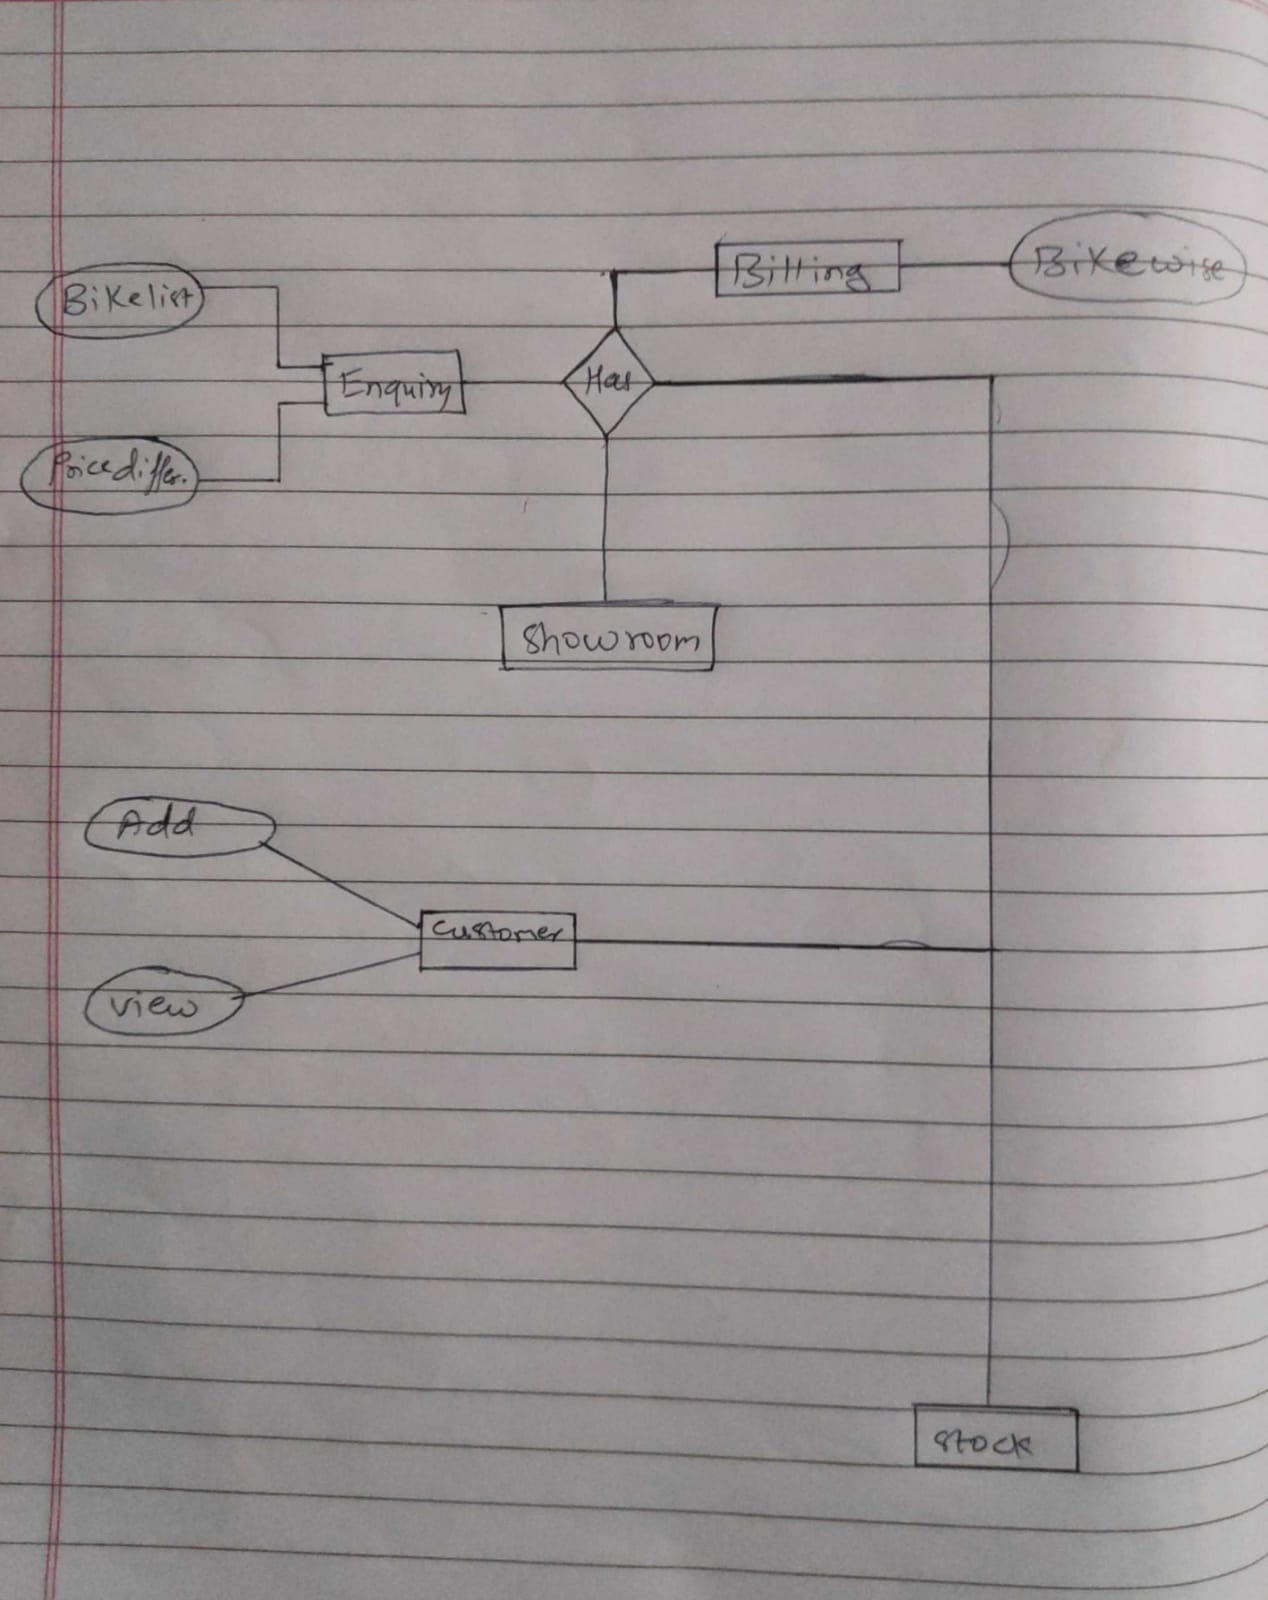 Billing
Bikewise
Bikelist
Enquiry
Has
Pricediffer.
Showroom
Add
Customer
view
stock